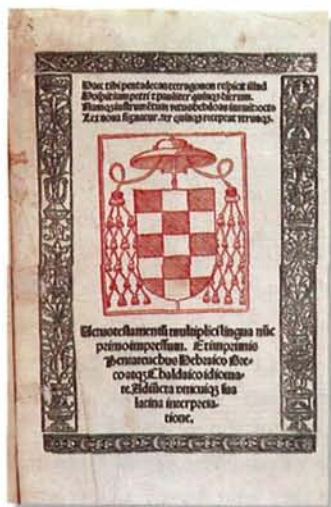 Hec tibi pentadecas tetragonon respicit illud
Hospitium petri ⁊ pauli ter quinqꝫ dierum.
Namqꝫ instrumētum vetus hebdoas innuit: octo
Lex noua signatur. ter quinqꝫ receptat utrunqꝫ.
Uetus testamentū multiplici lingua nūc
primo impressum. Et imprimis
Pentateuchus Hebraico Gre-
co atqꝫ Chaldaico idioma-
te. Adiūcta vnicuiqꝫ sua
latina interpreta-
tione.